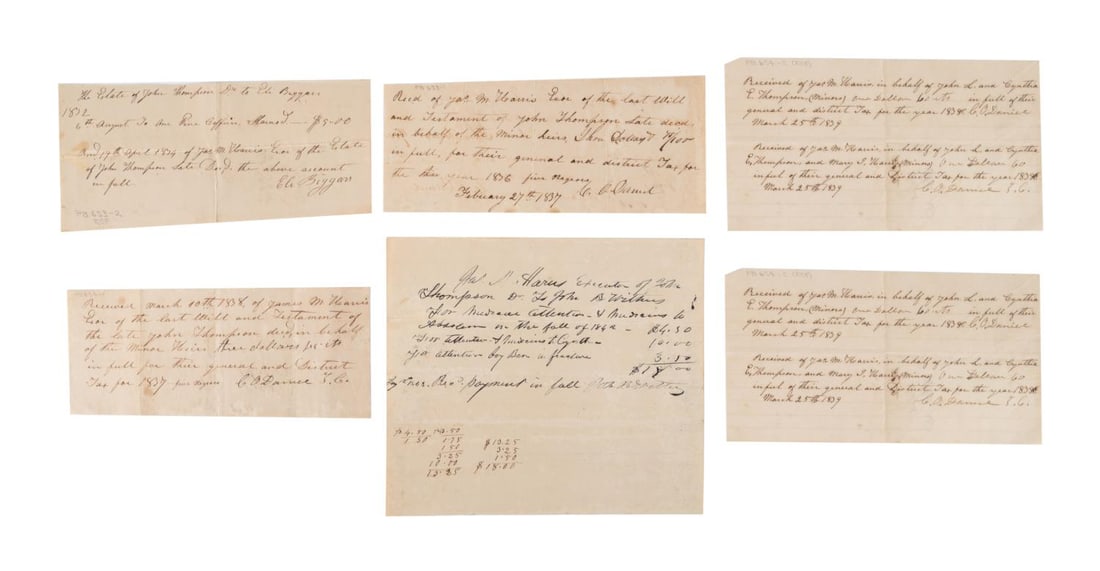 The Estate of John Thompson Dr to Eli Biggars
1832
6th August To One Pine Coffin, $5.00
Recd 17th April 1834 of Jas M Harris Exor of the Estate
of John Thompson Late Decd, the above account
in full
Eli Biggars
PB 633-2
Recd of Jas M Harris Exor of the last Will
and Testament of John Thompson Late decd
in behalf of the Minor heirs,
in full, for their general and district Tax, for
the year 1836 five negroes
February 27th 1837 C. O. Daniel
Received of Jas M Harris in behalf of John L. and Cynthia
E. Thompson (Minors) one Dollar 60 cts in full of their
general and district Tax for the year 1838 C O Daniel
March 25th 1839
Received of Jas M Harris in behalf of John L and Cynthia
E, Thompson and Mary J. (Minors) One Dollar 60
in full of their general and District Tax for the year 1838
March 25th 1839 C. O. Daniel T. C.
Received March 10th 1838, of James M Harris
Exor of the last Will and Testament of
the late John Thompson decd, in behalf
of the Minor Heirs dollars cts
in full for their general and District
Tax for 1837 C O Daniel T. C.
Jas M. Harris Executor of John
Thompson Dr. To John B Withers
For Medical attention & Medicine to
Absalom in the fall of $4.50
For attention & Medicine 10.00
For attention boy 3.50
$18.00
payment in full
$4.50 $3.50
1.50 1.75
1.50
3.25
10.00
13.25
$13.25
3.25
1.50
$18.00
Received of Jas M Harris in behalf of John L. and Cynthia
E. Thompson (Minors) one Dollar 60 cts in full of their
general and district Tax for the year 1838 C O Daniel
March 25th 1839
Received of Jas M Harris in behalf of John L and Cynthia
E, Thompson and Mary J. (Minors) One Dollar 60
in full of their general and District Tax for the year 1838
March 25th 1839 C. O. Daniel T. C.